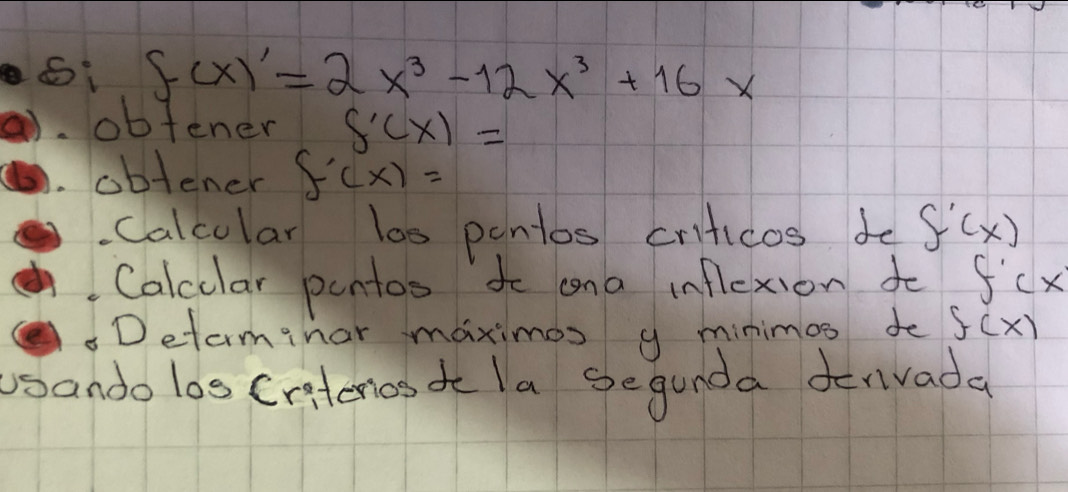 Si f(x)' = 2x³ - 12x³ + 16x
a). obtener f'(x) =
b). obtener f'(x) =
c). Calcular los puntos criticos de f'(x)
d). Calcular puntos de una inflexion de f'(x)
e). Determinar máximos y minimos de f(x)
usando los criterios de la segunda derivada